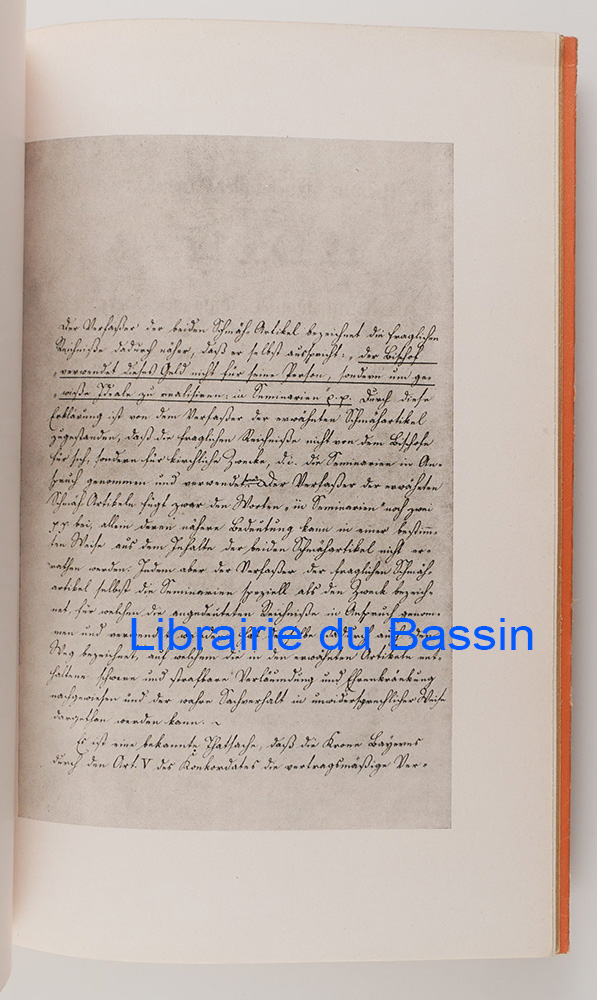 Der Verfaßer der beiden Schmäh-Artikel bezeichnet die fraglichen
Reichniße dadurch näher, daß er selbst ausspricht: „der Bischof
„verwendet dieses Geld nicht für seine Person, sondern um ge-
„wiße Ideale zu realisiren: in Seminarien p.p. Durch diese
Erklärung ist von dem Verfaßer der erwähnten Schmähartikel
zugestanden, daß die fraglichen Reichniße nicht von dem Bischofe
für sich, sondern für kirchliche Zwecke, d.i. die Seminarien in An-
spruch genommen und verwendet Der Verfaßer der erwähnten
Schmäh-Artikeln fügt zwar den Worten „in Seminarien" noch zwei
p.p bei; allein deren nähere Bedeutung kann in einer bestimm-
ten Weise aus dem Inhalte der beiden Schmähartikel nicht er-
rathen werden. Indem aber der Verfaßer der fraglichen Schmäh-
artikel selbst die Seminarien speziell als den Zweck bezeich-
net, für welchen die angedeuteten Reichniße in Anspruch genom-
men und verwendet werden, hat derselbe dadurch auch den
Weg bezeichnet, auf welchem die in den erwähnten Artikeln ent-
haltene schwere und strafbare Verläumdung und Ehrenkränkung
nachgewiesen und der wahre Sachverhalt in unwidersprechlicher Weise
dargethan werden kann. –
Es ist eine bekannte Thatsache, daß die Krone Bayerns
durch den Art. V des Konkordates die vertragsmäßige Ver-
Librairie du Bassin